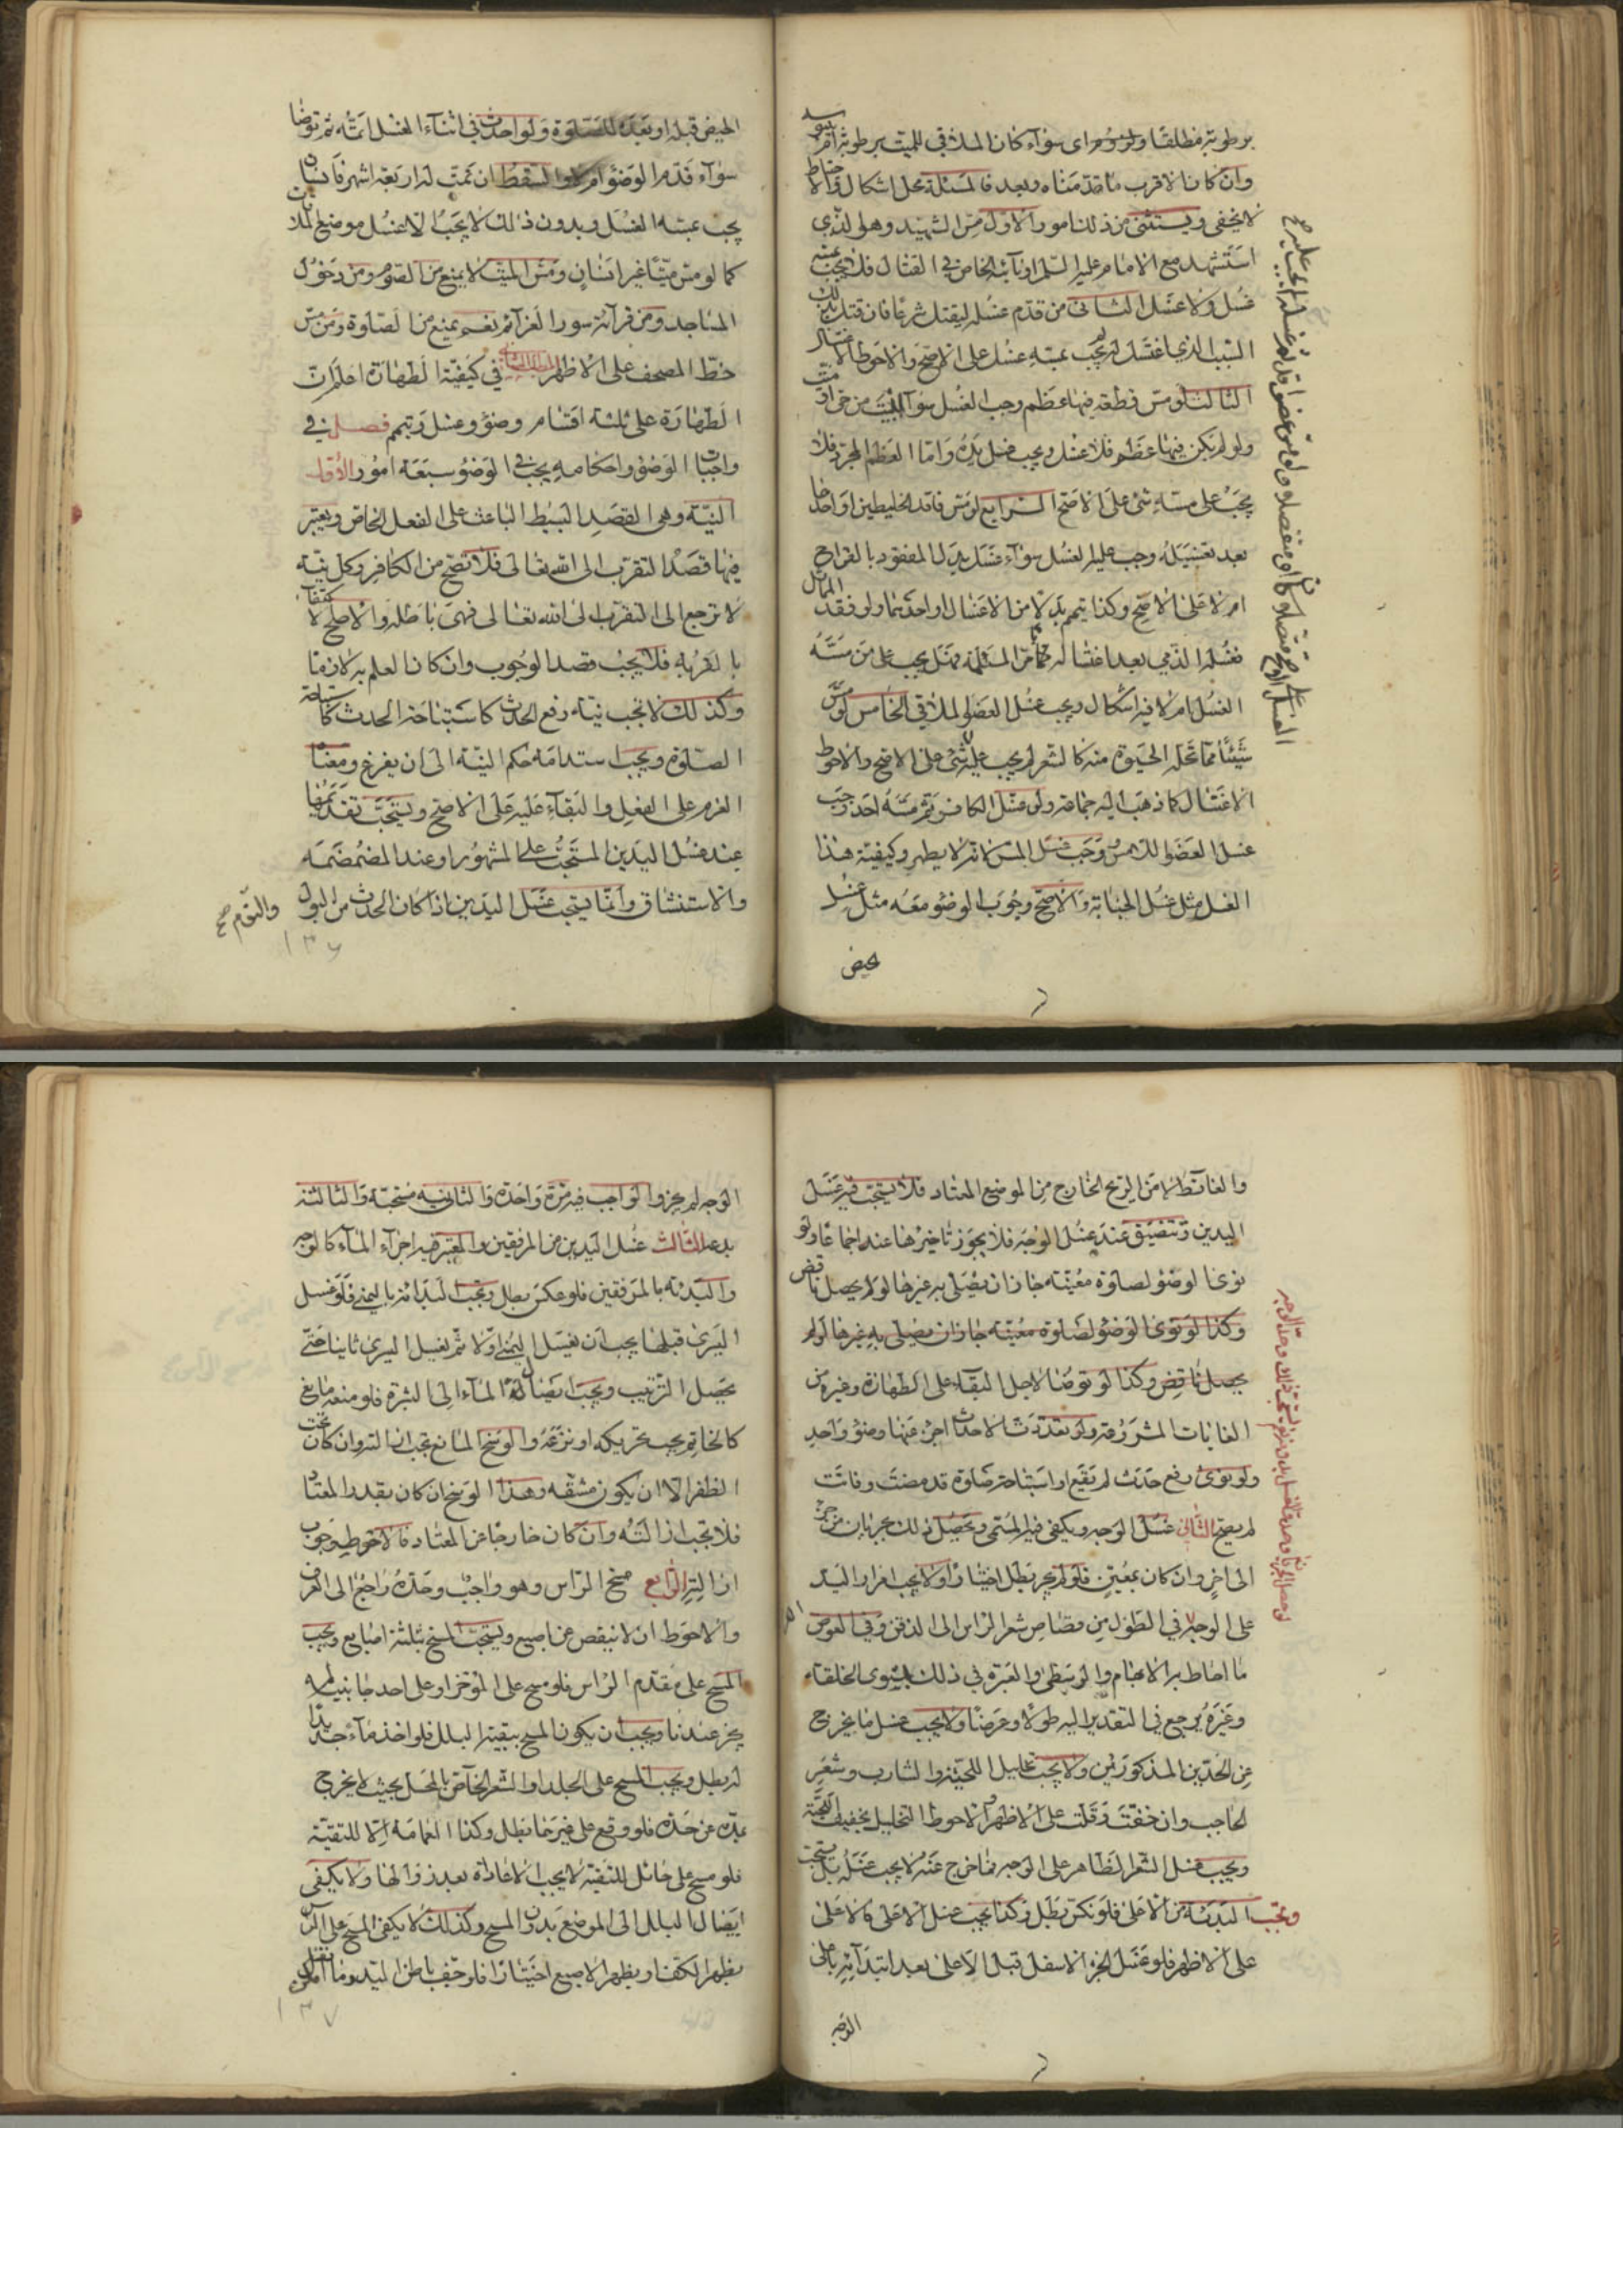 برطوبته مطلقا ولزومه اى سوآء كان الملاقى للميت برطوبة ام بيبوسة
وان كان الاقرب ما قدمناه وبعد فالمسئلة محل اشكال والاحتياط
لا يخفى ويستثنى من ذلك امور الاول مس الشهيد وهو الذى
استشهد مع الامام عليه السلم او نآئبه الخاص فى القتال فلا يجب بمسه
غسل ولا غسل الثانى من قدم غسله ليقتل شرعا فان قتل بذلك
السبب الذى اغتسل له لم يجب بمسه غسل على الاصح والاحوط الاغتسال
الثالث لو مس قطعة فيها عظم وجب الغسل سوآء ابينت من حى او ميت
ولو لم يكن فيها عظم فلا غسل ويجب غسل يده واما العظم المجرد فلا
يجب على مسه شئ على الاصح الرابع لو مس فاقد الخليطين او احدهما
بعد تغسيله وجب عليه الغسل سوآء غسل بدل المفقود بالقراح
ام لا على الاصح وكذا تيمم بدلا من الاغسال او احدهما ولو فقد المماثل
فغسله الذمى بعد اغتساله كما مر فى المسئلة فهل يجب على من مسه
الغسل ام لا فيه اشكال ويجب غسل العضو الملاقى الخامس لو مس
شيئا مما تحله الحيوة منه كالشعر لم يجب عليه شئ على الاصح والاحوط
الاغتسال كما ذهب اليه جماعة ولو غسل الكافر ثم مسه احد وجب
غسل العضو اللامس ووجب غسل المس لانه لا يطهر وكيفية هذا
الغسل مثل غسل الجنابة والاصح وجوب الوضوء معه مثل غسل
الحيض
الحيض قبله او بعده للصلوة ولو احدث فى اثنآء الغسل اتمه ثم توضا
سوآء قدم الوضوء ام لا والسقط ان تمت له اربعة اشهر فانسان
يجب بمسه الغسل وبدون ذلك لا يجب الا غسل موضع الملاقات
كما لو مس ميتا غير انسان ومس الميت لا يمنع من الصوم ومن دخول
المساجد ومن قرآءة سور العزآئم نعم يمنع من الصلوة ومن مس
خط المصحف على الاظهر فى كيفية الطهارة اعلم ان
الطهارة على ثلثة اقسام وضوء وغسل وتيمم فصل فى
واجبات الوضوء واحكامه يجب فى الوضوء سبعة امور الاول
النية وهى القصد البسيط الباعث على الفعل الخاص ويعتبر
فيها قصد التقرب الى الله تعالى فلا تصح من الكافر وكل نية
لا ترجع الى التقرب الى الله تعالى فهى باطلة والاصح الاكتفآء
بالقربة فلا يجب قصد الوجوب وان كان العلم به لازما
وكذلك لا تجب نية رفع الحدث كاستباحة الحدث كاستباحة
الصلوة ويجب استدامة حكم النية الى ان يفرغ ومعنا
العزم على الفعل والبقآء عليه على الاصح ويستحب تقديمها
عند غسل اليدين المستحب على المشهور او عند المضمضة
والاستنشاق وانما يستحب غسل اليدين اذا كان الحدث من البول
والنوم صح
١٣٦
والغائط لا من الريح الخارج من الموضع المعتاد فلا يستحب فيه غسل
اليدين وتتضيق عند غسل الوجه فلا يجوز تاخيرها عنه اجماعا ولو
نوى الوضوء لصلوة معينة جاز ان يصلى به غيرها لو لم يحصل ناقض
وكذا لو نوى الوضوء لصلوة معينة جاز ان يصلى به غيرها لو لم
يحصل ناقض وكذا لو توضا لاجل البقآء على الطهارة وغيره من
الغايات المشروعة ولو تعددت الاحداث اجزء عنها وضوء واحد
ولو نوى رفع حدث لم يقع او استباحة صلوة قد مضت وفاتت
لم يصح الثانى غسل الوجه ويكفى فيه المسمى ويحصل ذلك بجريان من جزء
الى اخر وان كان بمعين فلو لم يجر بطل اختيارا ولا يجب امرار اليد
على الوجه فى الطول من قصاص شعر الراس الى الذقن وفى العرض
ما احاط به الابهام والوسطى والعبرة فى ذلك بمستوى الخلقة
وغيره يرجع فى التقدير اليه طولا وعرضا ولا يجب غسل ما يخرج
عن الحدين المذكورين ولا يجب تخليل اللحية والشارب وشعر
الحاجب وان خفت وقلت على الاظهر والاحوط التخليل لخفيف اللحية
ويجب غسل الشعر الظاهر على الوجه فما خرج عنه لا يجب غسله بل يستحب
ويجب البدئة من الاعلى فلو نكس بطل وكذا يجب غسل الاعلى فالاعلى
على الاظهر فلو غسل الجزء الاسفل قبل الاعلى بعد ابتدآئه باعلى
الوجه
الوجه لم يجز والواجب فيه مرة واحدة والثانية مستحبة والثالثة
بدعة الثالث غسل اليدين من المرفقين والمعتبر فيه اجرآء المآء كالوجه
والبدئة بالمرفقين فلو عكس بطل ويجب البدائة باليمنى فلو غسل
اليسرى قبلها يجب ان يغسل اليمنى اولا ثم يغسل اليسرى ثانيا حتى
يحصل الترتيب ويجب ايصال المآء الى البشرة فلو منعه مانع
كالخاتم يجب تحريكه او نزعه والوسخ المانع تجب ازالته وان كان تحت
الظفر الا ان يكون مشقة وهذا الوسخ ان كان بقدر المعتاد
فلا تجب ازالته وان كان خارجا عن المعتاد فالاحوط وجوب
ازالته الرابع مسح الراس وهو واجب وحده راجع الى العرف
والاحوط ان لا ينقص عن اصبع ويستحب المسح بثلثة اصابع ويجب
المسح على مقدم الراس فلو مسح على المؤخر او على احد جانبيه لم
يجز عندنا ويجب ان يكون المسح ببقية البلل فلو اخذ مآء جديدا
له بطل ويجب المسح على الجلد او الشعر الخاص بالمحل بحيث لا يخرج
بمده عن حده فلو وقع على غيرهما بطل وكذا العمامة الا للتقية
فلو مسح على حائل للتقية لا يجب الاعادة بعد زوالها ولا يكفى
ايصال البلل الى الموضع بدون المسح وكذلك لا يكفى المسح على الراس
بظهر الكف او بظهر الاصبع اختيارا فلو جف باطن اليد وما امكن
١٣٧